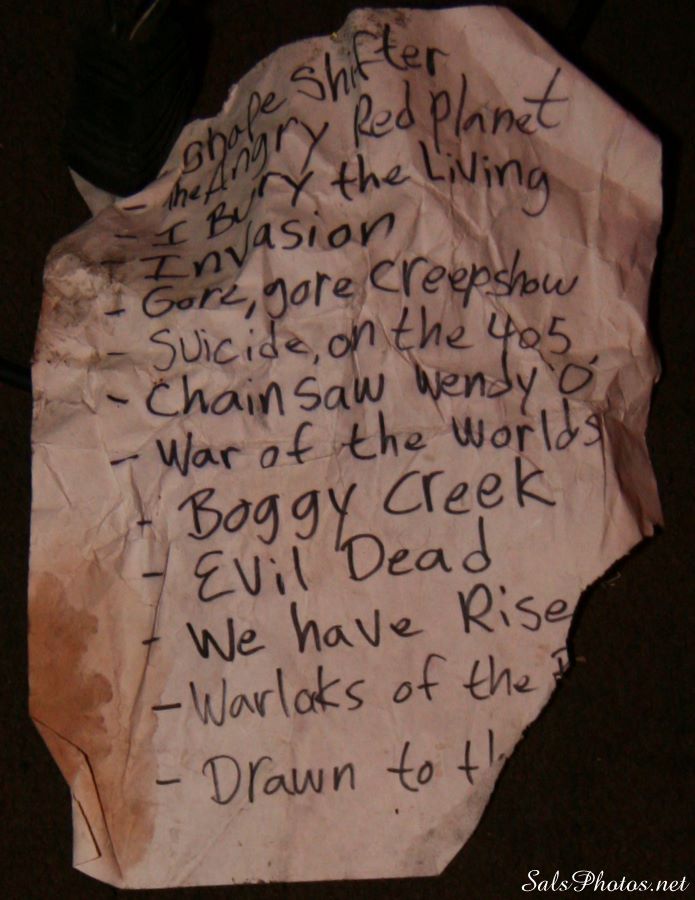 - Shape Shifter
- the Angry Red planet
- I Bury the Living
- Invasion
- Gore, gore creepshow
- Suicide, on the 405
- Chainsaw Wendy 'O'
- War of the Worlds
- Boggy Creek
- Evil Dead
- We have Rise
- Warloks of the
- Drawn to th
SalsPhotos.net